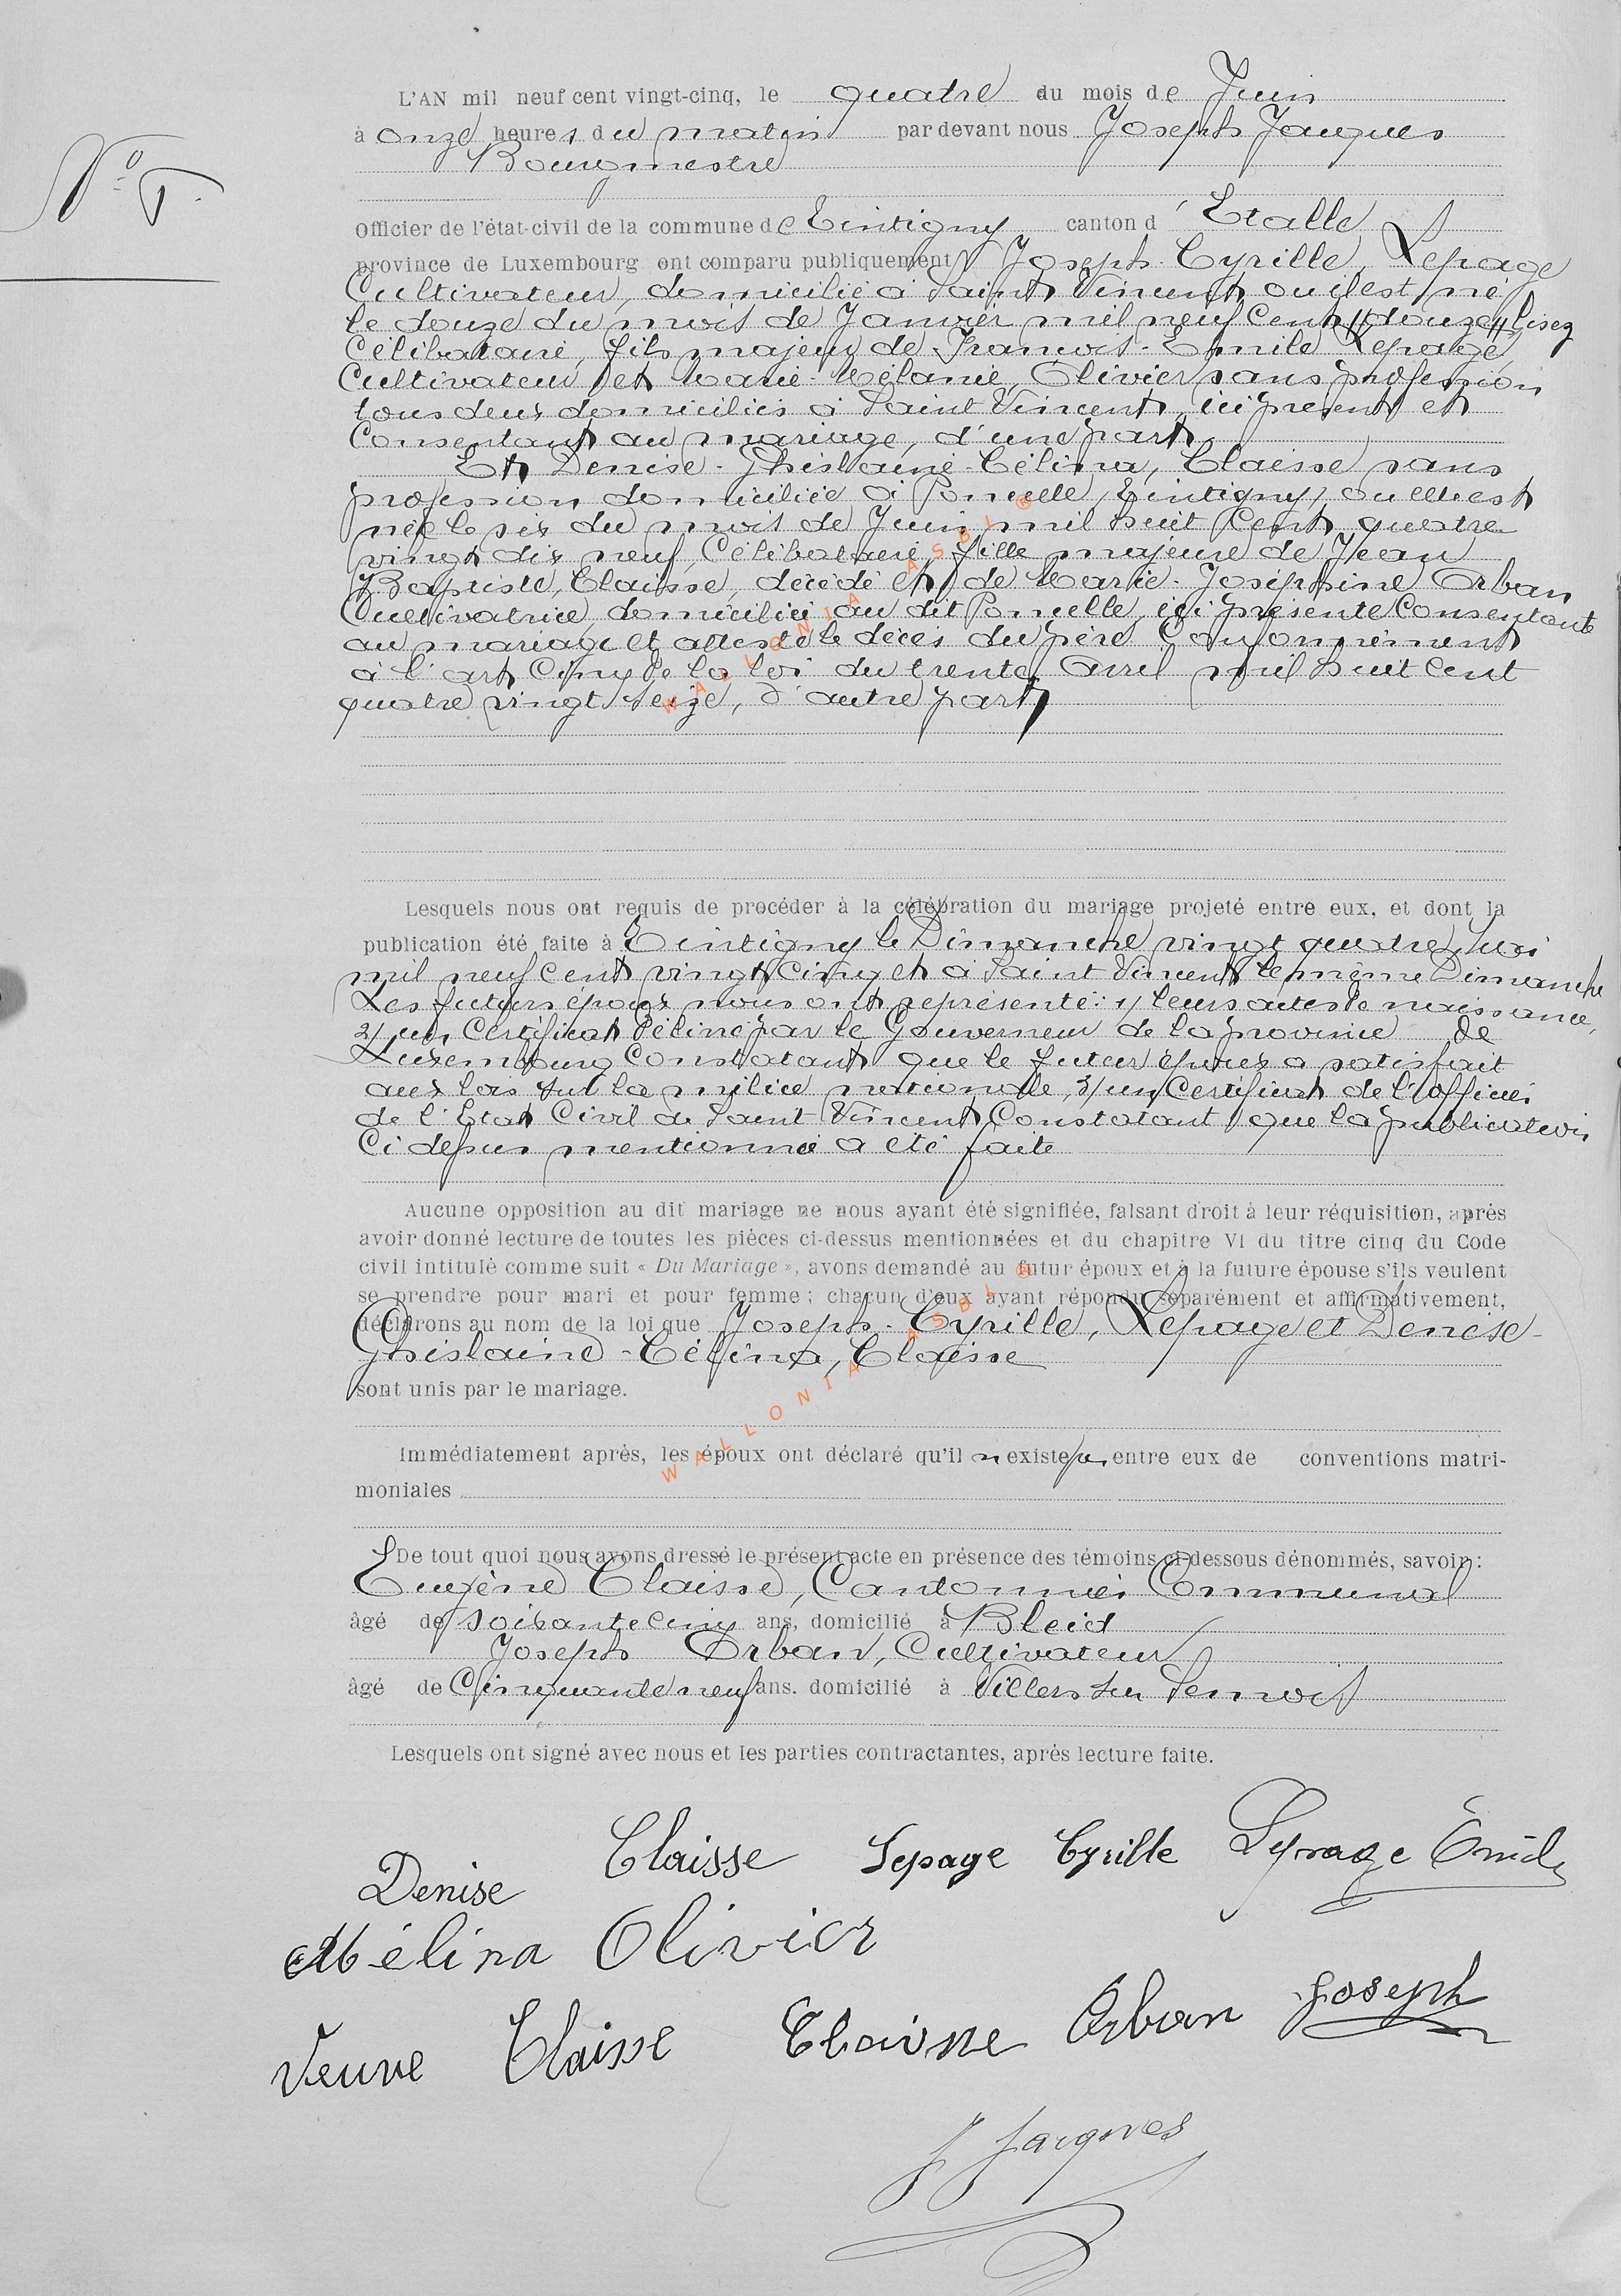 L'AN mil neuf cent vingt-cinq, le quatre du mois de Juin
N° 5.
à onze heures du matin par devant nous Joseph Jacques
Bourgmestre
Officier de l'état-civil de la commune de Tintigny canton d' Etalle
province de Luxembourg ont comparu publiquement Joseph-Cyrille, Lepage
Cultivateur, domicilié à Saint Vincent, ou il est né
le douze du mois de Janvier mil neuf cent douze lisez
Célibataire, fils majeur de Francois-Emile Lepage,
Cultivateur et Marie-Mélanie, Olivier sans profession
tous deux domiciliés à Saint Vincent, ici présent et
Consentant au mariage, d'une part
Et Denise-Ghislaine-Célina, Claisse sans
profession domiciliée à Poncelle, Tintigny, ou elle est
née le six du mois de Juin mil huit cent quatre
vingt dix neuf, Célibataire, fille majeure de Jean
Baptiste, Claisse, décédé et de Marie-Joséphine Orban
Cultivatrice, domiciliée au dit Poncelle, ici présente Consentante
au mariage et atteste le décès du père Conformément
à l'art Cinq de la loi du trente Avril mil huit cent
quatre vingt seize, d'autre part,
Lesquels nous ont requis de procéder à la célébration du mariage projeté entre eux, et dont la
publication été faite à Tintigny le Dimanche vingt quatre Mai
mil neuf cent vingt cinq et à Saint Vincent le même Dimanche
Les futurs époux nous ont représenté: 1/ leurs actes de naissance,
2/ un Certificat délivré par le Gouverneur de la province de
Luxembourg Constatant que le futur époux a satisfait
aux lois sur la milice nationale, 3/ un Certificat de l'officier
de l'Etat Civil de Saint Vincent Constatant que la publication
Ci dessus mentionné a été faite
Aucune opposition au dit mariage ne nous ayant été signifiée, falsant droit à leur réquisition, après
avoir donné lecture de toutes les pièces ci-dessus mentionnées et du chapitre VI du titre cinq du Code
civil intitulé comme suit « Du Mariage », avons demandé au futur époux et à la future épouse s'ils veulent
se prendre pour mari et pour femme; chacun d'eux ayant répondu séparément et affirmativement,
déclarons au nom de la loi que Joseph-Cyrille, Lepage et Denise-
Ghislaine-Célina, Claisse
sont unis par le mariage.
Immédiatement après, les époux ont déclaré qu'il n'existe pas entre eux de conventions matri-
moniales
De tout quoi nous avons dressé le présent acte en présence des témoins ci-dessous dénommés, savoir:
Eugène Claisse, Cantonnier Communal
âgé de soixante cinq ans, domicilié à Bleid
Joseph Orban, Cultivateur
âgé de Cinquante neuf ans. domicilié à Villers sur Semois
Lesquels ont signé avec nous et les parties contractantes, après lecture faite.
Denise Claisse Lepage Cyrille Lepage Emile
Mélina Olivier
Veuve Claisse Claisse Orban Joseph
J Jacques
WALLONIA ASBL ®
WALLONIA ASBL ®